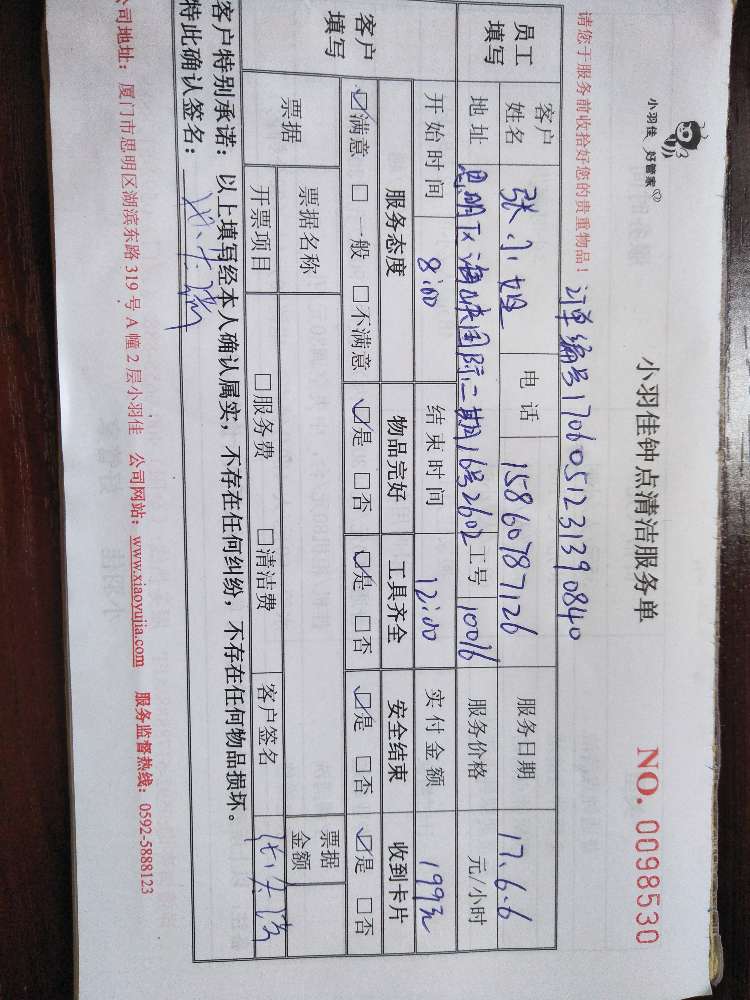 小羽佳 好管家
小羽佳钟点清洁服务单
NO. 0098530
请您于服务前收拾好您的贵重物品！ 订单编号1706051231390840
员工填写 客户姓名 张小姐 电话 15860787126 服务日期 17.6.6
地址 思明区海峡国际二期16号2602 工号 10016 服务价格 元/小时
客户填写 开始时间 8:00 结束时间 12:00 实付金额 199元
服务态度 物品完好 工具齐全 安全结束 收到卡片
☑满意 □一般 □不满意 ☑是 □否 ☑是 □否 ☑是 □否 ☑是 □否
票据 票据名称 票据金额
开票项目 □服务费 □清洁费 客户签名
客户特别承诺：以上填写经本人确认属实，不存在任何纠纷，不存在任何物品损坏。
特此确认签名：
公司地址：厦门市思明区湖滨东路319号A幢2层小羽佳 公司网站：www.xiaoyujia.com 服务监督热线：0592-5888123